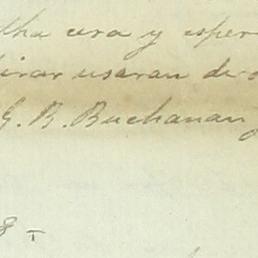 lha era y esper
irar usaran de
G. R. Buchanan
8